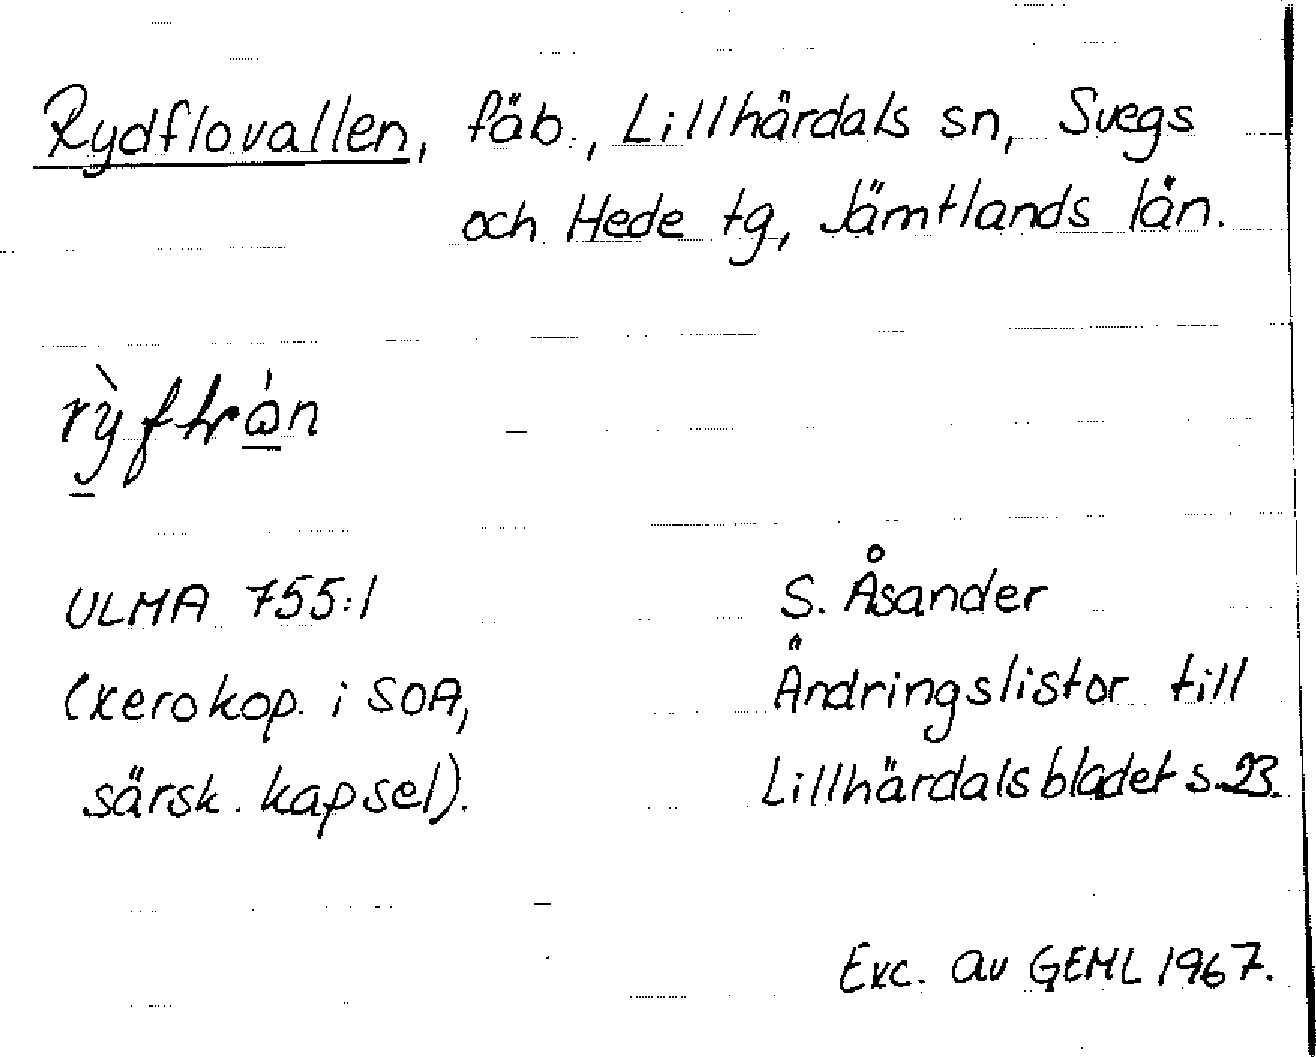 Rydflovallen, fäb., Lillhärdals sn, Svegs
och Hede tg, Jämtlands län.
ULMA 755:1
(xerokop. i SOA,
särsk. kapsel).
S. Åsander
Ändringslistor till
Lillhärdalsbladet s.23.
Exc. av GEML 1967.